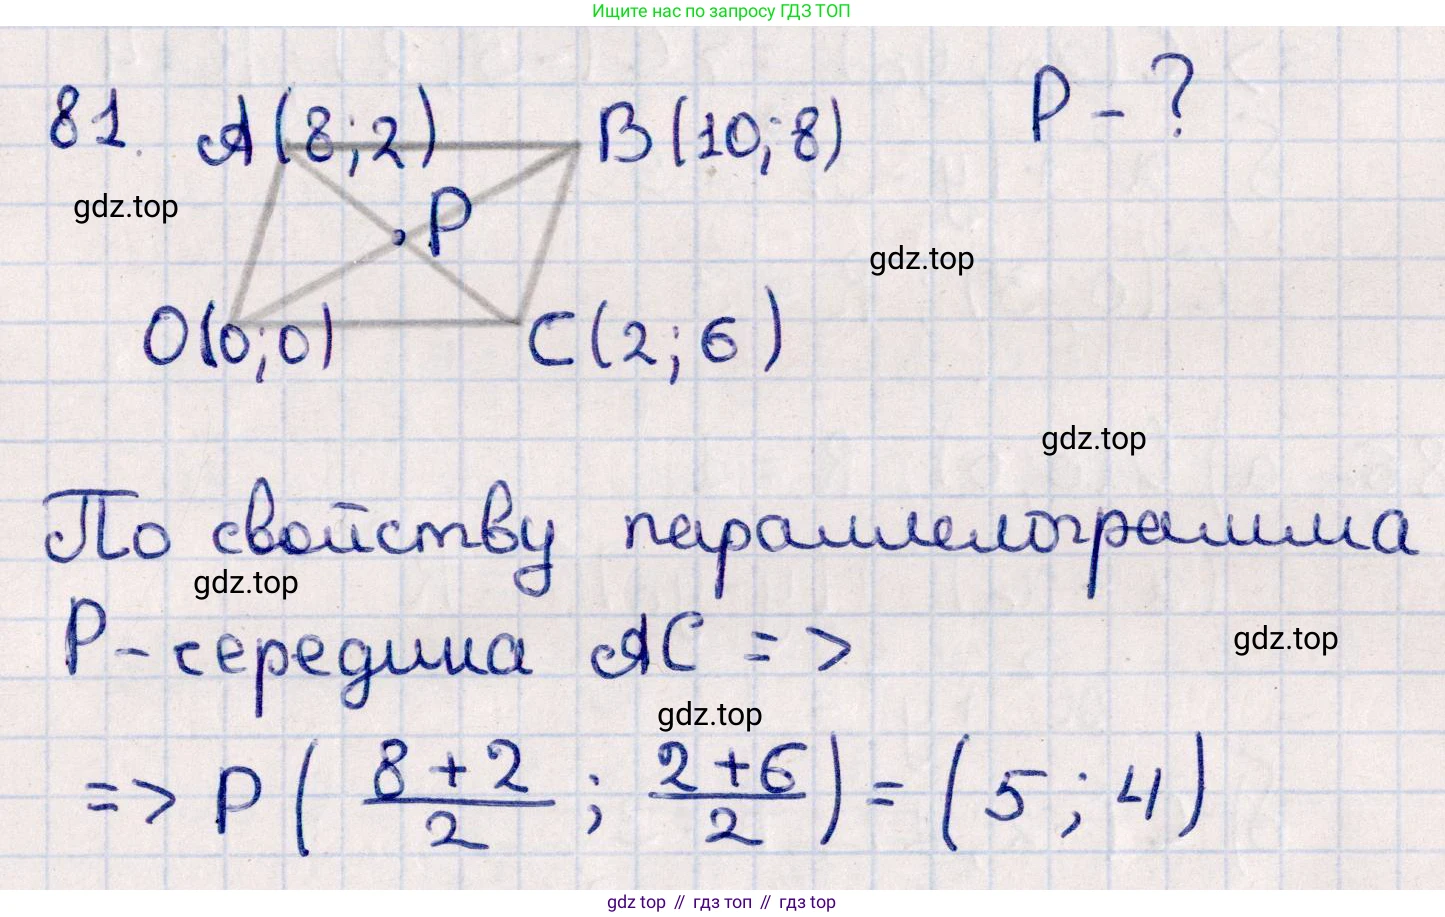 Ищите нас по запросу ГДЗ ТОП
81. A(8;2) B(10;8) P - ?
gdz.top
P
gdz.top
O(0;0) C(2;6)
gdz.top
По свойству параллелограмма
gdz.top
P-середина AC =>
gdz.top
gdz.top
=> P ( 8+2/2 ; 2+6/2 ) = (5;4)
gdz top // гдз топ // гдз top